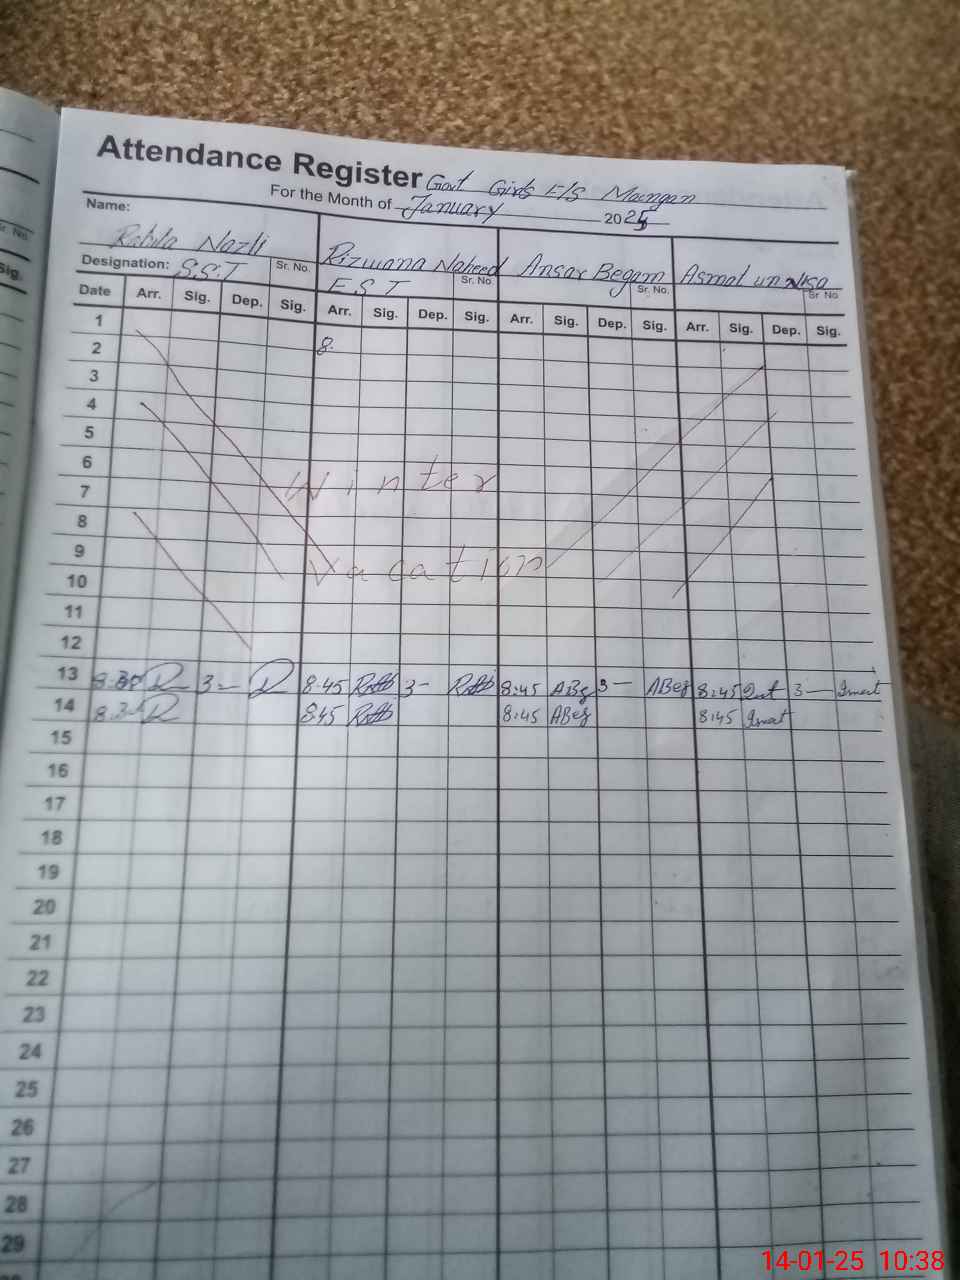 Attendance Register Govt Girls E/S Moengan
For the Month of January 2025
Name:
Rahila Nazli Rizwana Naheed Ansar Begam Asmat un Nisa
Designation: S.S.T Sr. No. E S T Sr. No. Sr. No. Sr No.
Date Arr. Sig. Dep. Sig. Arr. Sig. Dep. Sig. Arr. Sig. Dep. Sig. Arr. Sig. Dep. Sig.
1
2 8.
3
4
5
6
Winter
7
8
9
Vacation
10
11
12
13 8.30 3- 8.45 3- 8:45 ABeg 3- ABeg 8:45 3-
14 8.3- 8.45 8:45 ABeg 8:45
15
16
17
18
19
20
21
22
23
24
25
26
27
28
29
Sr. No.
Sig.
14-01-25 10:38